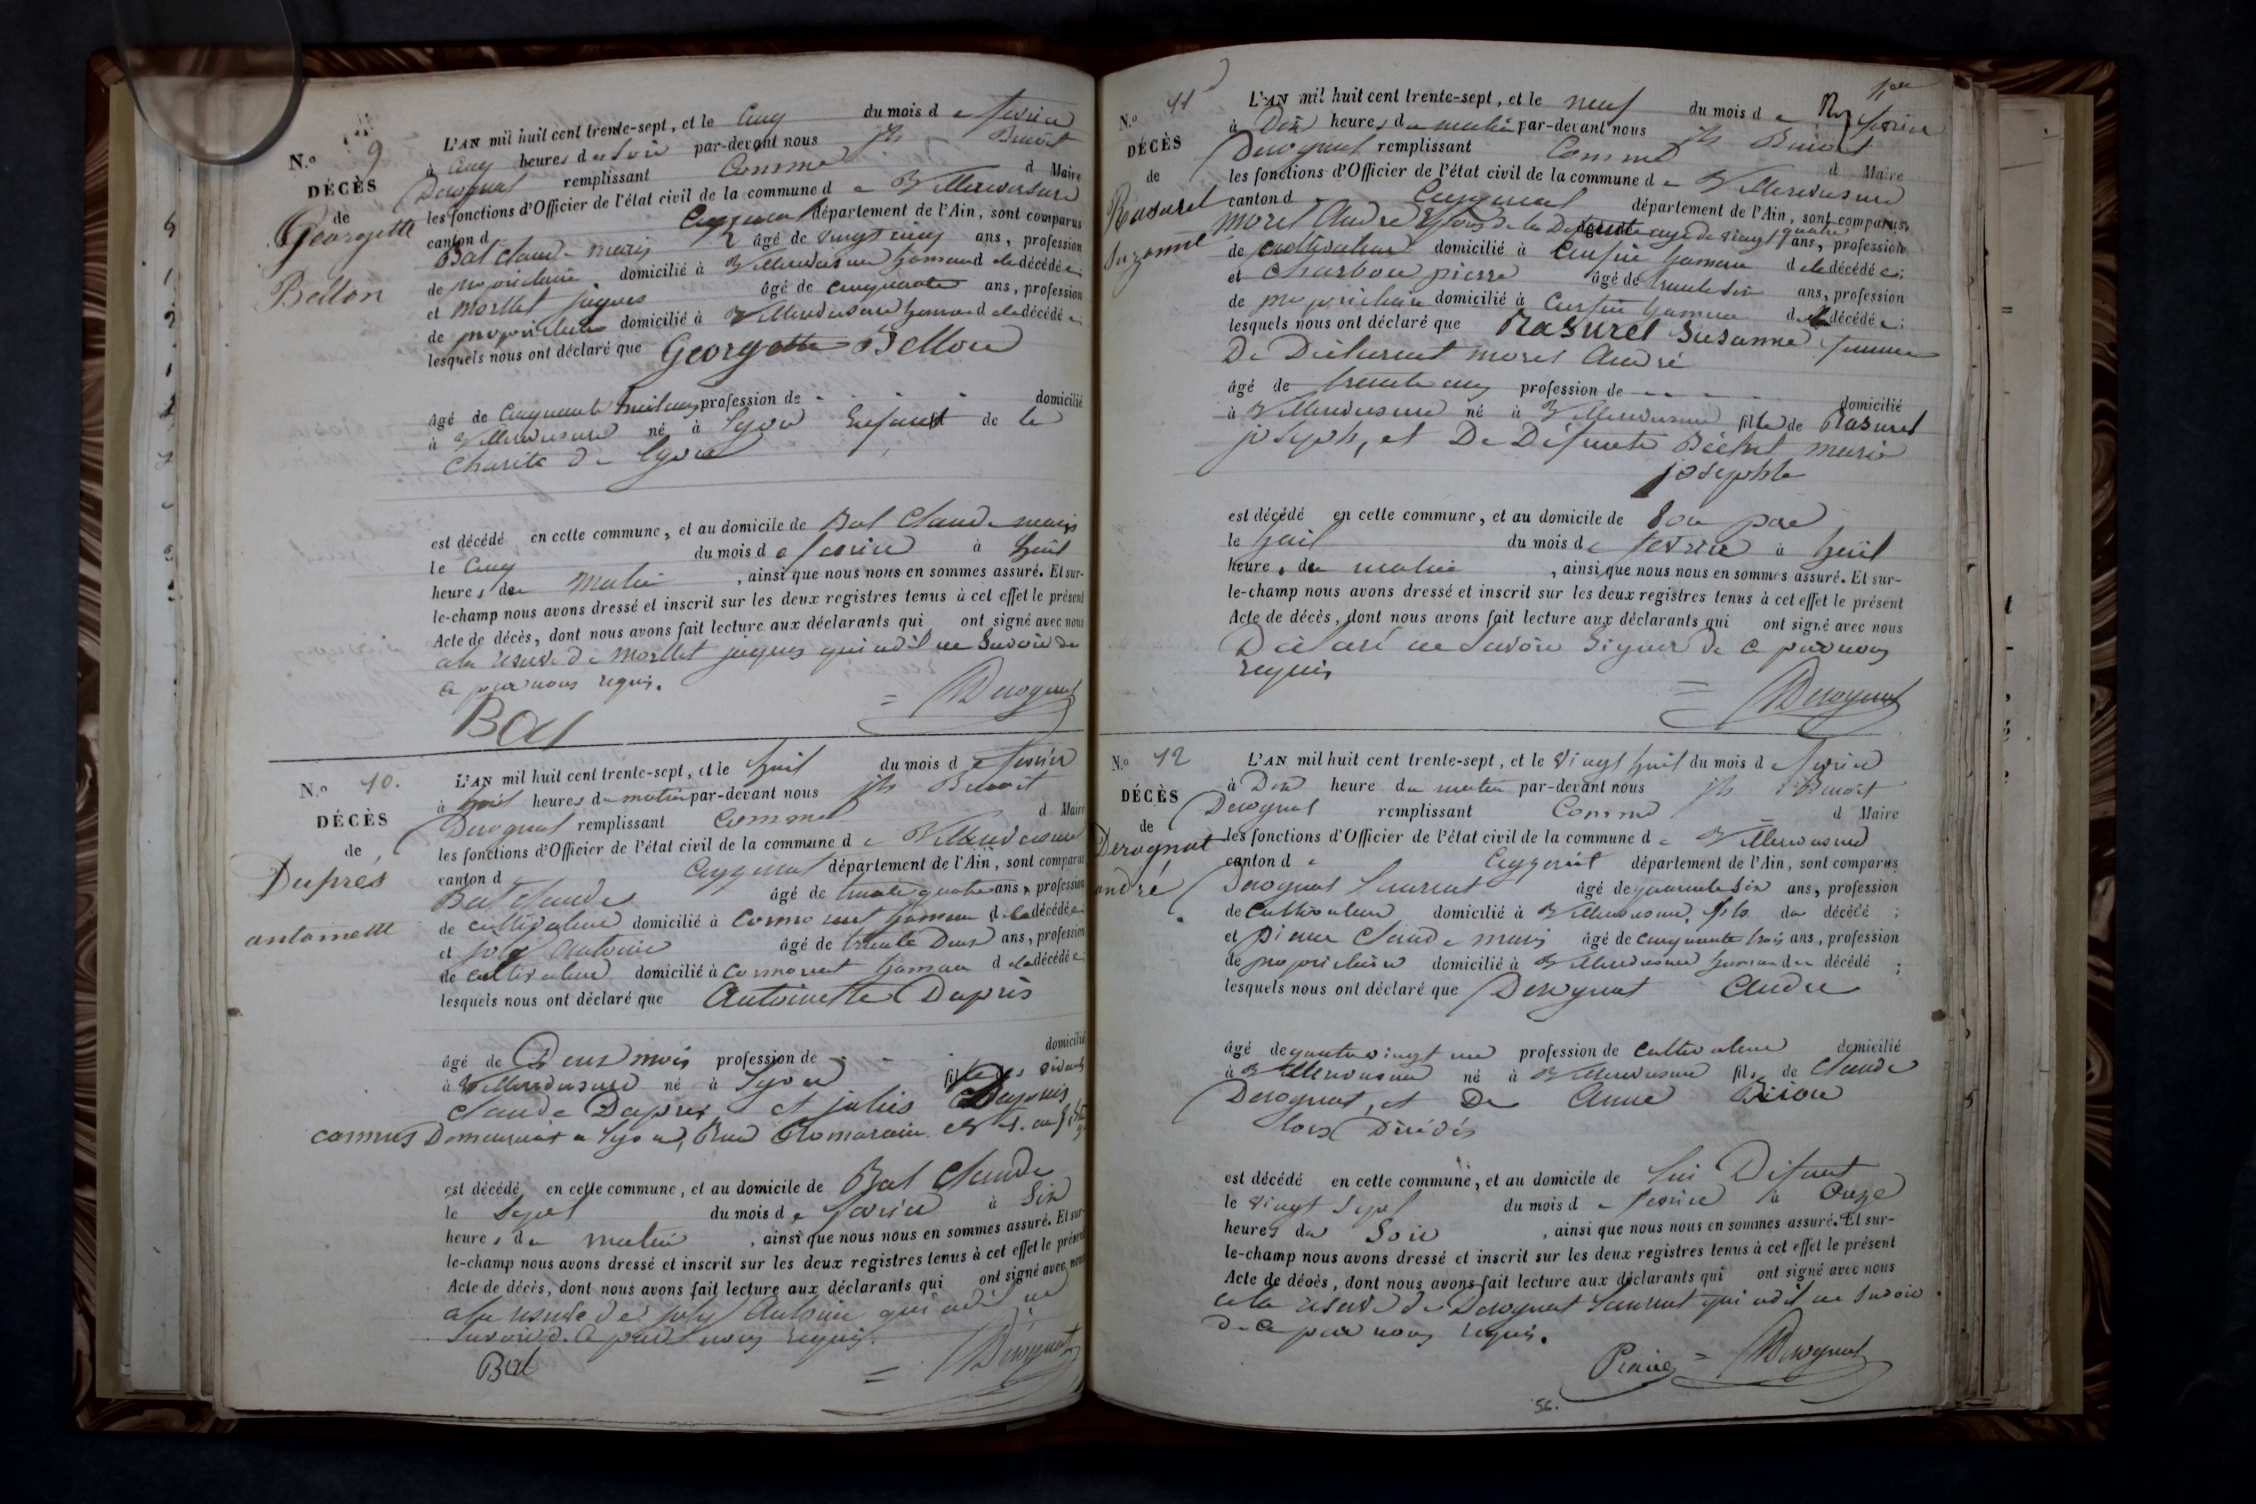 N.o 9
DÉCÈS
de
Georgette
Bellon
L'AN mil huit cent trente-sept, et le cinq du mois de fevrier
à cinq heures du soir par-devant nous jh Benoit
Derognat remplissant Comme d Maire
les fonctions d'Officier de l'état civil de la commune de Villereversure
canton d Ceyzeriat département de l'Ain, sont comparus
Bal Claude marie âgé de vingt cinq ans, profession
de propriétaire domicilié à Villereversure hameau de la décédée;
et Morllet jaques âgé de cinquante ans, profession
de propriétaire domicilié à Villereversure hameau de la décédée;
lesquels nous ont déclaré que Georgette Bellon
âgé de Cinquante huit ans profession de domicilié
à Villereversure né à Lyon Enfant de la
Charité de Lyon
est décédé en cette commune, et au domicile de Bal Claude marie
le Cinq du mois de fevrier à huit
heures du matin, ainsi que nous nous en sommes assuré. Et sur-
le-champ nous avons dressé et inscrit sur les deux registres tenus à cet effet le présent
Acte de décès, dont nous avons fait lecture aux déclarants qui ont signé avec nous
a la reserve de Morllet jaques qui a dit ne Savoir de
ce par nous requis.
Bal Derognat
N.o 10.
DÉCÈS
de
Duprés
antoinette
L'AN mil huit cent trente-sept, et le huit du mois de fevrier
à huit heures du matin par-devant nous jh Benoit
Derognat remplissant Comme d Maire
les fonctions d'Officier de l'état civil de la commune de Villereversure
canton d Ceyzeriat département de l'Ain, sont comparus
Bal Claude âgé de trente quatre ans, profession
de cultivateur domicilié à Cormorant hameau de la décédée;
et joly Antoine âgé de trente Deux ans, profession
de cultivateur domicilié à Cormorant hameau de la décédée;
lesquels nous ont déclaré que Antoinette Duprés
âgé de Deux mois profession de domicilié
à Villereversure né à Lyon fille des vivants
Claude Dupres et julie
Demeurant a Lyon, Rue Romarain
est décédé en cette commune, et au domicile de Bal Claude
le Sept du mois de fevrier à Six
heures du matin, ainsi que nous nous en sommes assuré. Et sur-
le-champ nous avons dressé et inscrit sur les deux registres tenus à cet effet le présent
Acte de décès, dont nous avons fait lecture aux déclarants qui ont signé avec nous
a la reserve de joly Antoine qui a dit ne
Savoir de ce par nous requis.
Bal Derognat
N.o 11
DÉCÈS
de
Rasurel
Suzanne
L'AN mil huit cent trente-sept, et le neuf du mois de fevrier
à Dix heures du matin par-devant nous jh Benoit
Derognat remplissant Comme d Maire
les fonctions d'Officier de l'état civil de la commune de Villereversure
canton d Ceyzeriat département de l'Ain, sont comparus
Morel André Epoux de la Defunte age de vingt quatre ans, profession
de cultivateur domicilié à hameau de la décédée;
et Charbon pierre âgé de trente six ans, profession
de propriétaire domicilié à hameau de la décédée;
lesquels nous ont déclaré que Rasurel Susanne femme
De Déclarant morel André
âgé de trente cinq profession de domicilié
à Villereversure né à Villereversure fille de Rasurel
joseph, et De Défunte Béchet marie
josephte
est décédé en cette commune, et au domicile de son père
le huit du mois de fevrier à huit
heures du matin, ainsi que nous nous en sommes assuré. Et sur-
le-champ nous avons dressé et inscrit sur les deux registres tenus à cet effet le présent
Acte de décès, dont nous avons fait lecture aux déclarants qui ont signé avec nous
Déclaré ne Savoir Signer de ce par nous
requis
Derognat
N.o 12
DÉCÈS
de
Derognat
andré
L'AN mil huit cent trente-sept, et le vingt huit du mois de fevrier
à Dix heure du matin par-devant nous jh Benoit
Derognat remplissant Comme d Maire
les fonctions d'Officier de l'état civil de la commune de Villereversure
canton de Ceyzeriat département de l'Ain, sont comparus
Derognat Laurent âgé de quarante six ans, profession
de Cultivateur domicilié à Villereversure, fils du décédé;
et Piaux Claude marie âgé de cinquante trois ans, profession
de propriétaire domicilié à Villereversure hameau du décédé;
lesquels nous ont déclaré que Derognat Andre
âgé de quatre vingt un profession de cultivateur domicilié
à Villereversure né à Villereversure fils de Claude
Derognat, et De Anne
Décédés
est décédé en cette commune, et au domicile de lui Defunt
le vingt Sept du mois de fevrier à Onze
heures du Soir, ainsi que nous nous en sommes assuré. Et sur-
le-champ nous avons dressé et inscrit sur les deux registres tenus à cet effet le présent
Acte de décès, dont nous avons fait lecture aux déclarants qui ont signé avec nous
a la reserve de Derognat Laurent qui a dit ne Savoir
de ce par nous requis.
Derognat
56.